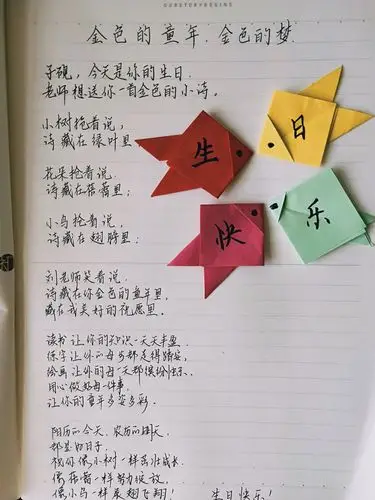 OURSTORYBEGINS
金色的童年.金色的梦
子砚，今天是你的生日.
老师想送你一首金色的小诗。
小树抢着说，
诗藏在绿叶里
花朵抢着说.
诗藏在蓓蕾里；
小鸟抢着说，
诗藏在翅膀里；
刘老师笑着说.
诗藏在你金色的童年里.
藏在我美好的祝愿里。
读书让你的知识一天天丰盈.
练字让你的每一步都走得踏实，
绘画让你的每一天都缤纷快乐.
用心做好每一件事.
让你的童年多姿多彩.
阳历的今天.农历的明天
都是好日子.
祝你像小树一样茁壮成长.
像蓓蕾一样努力绽放.
像小鸟一样展翅飞翔！
生日快乐！
生
日
快
乐